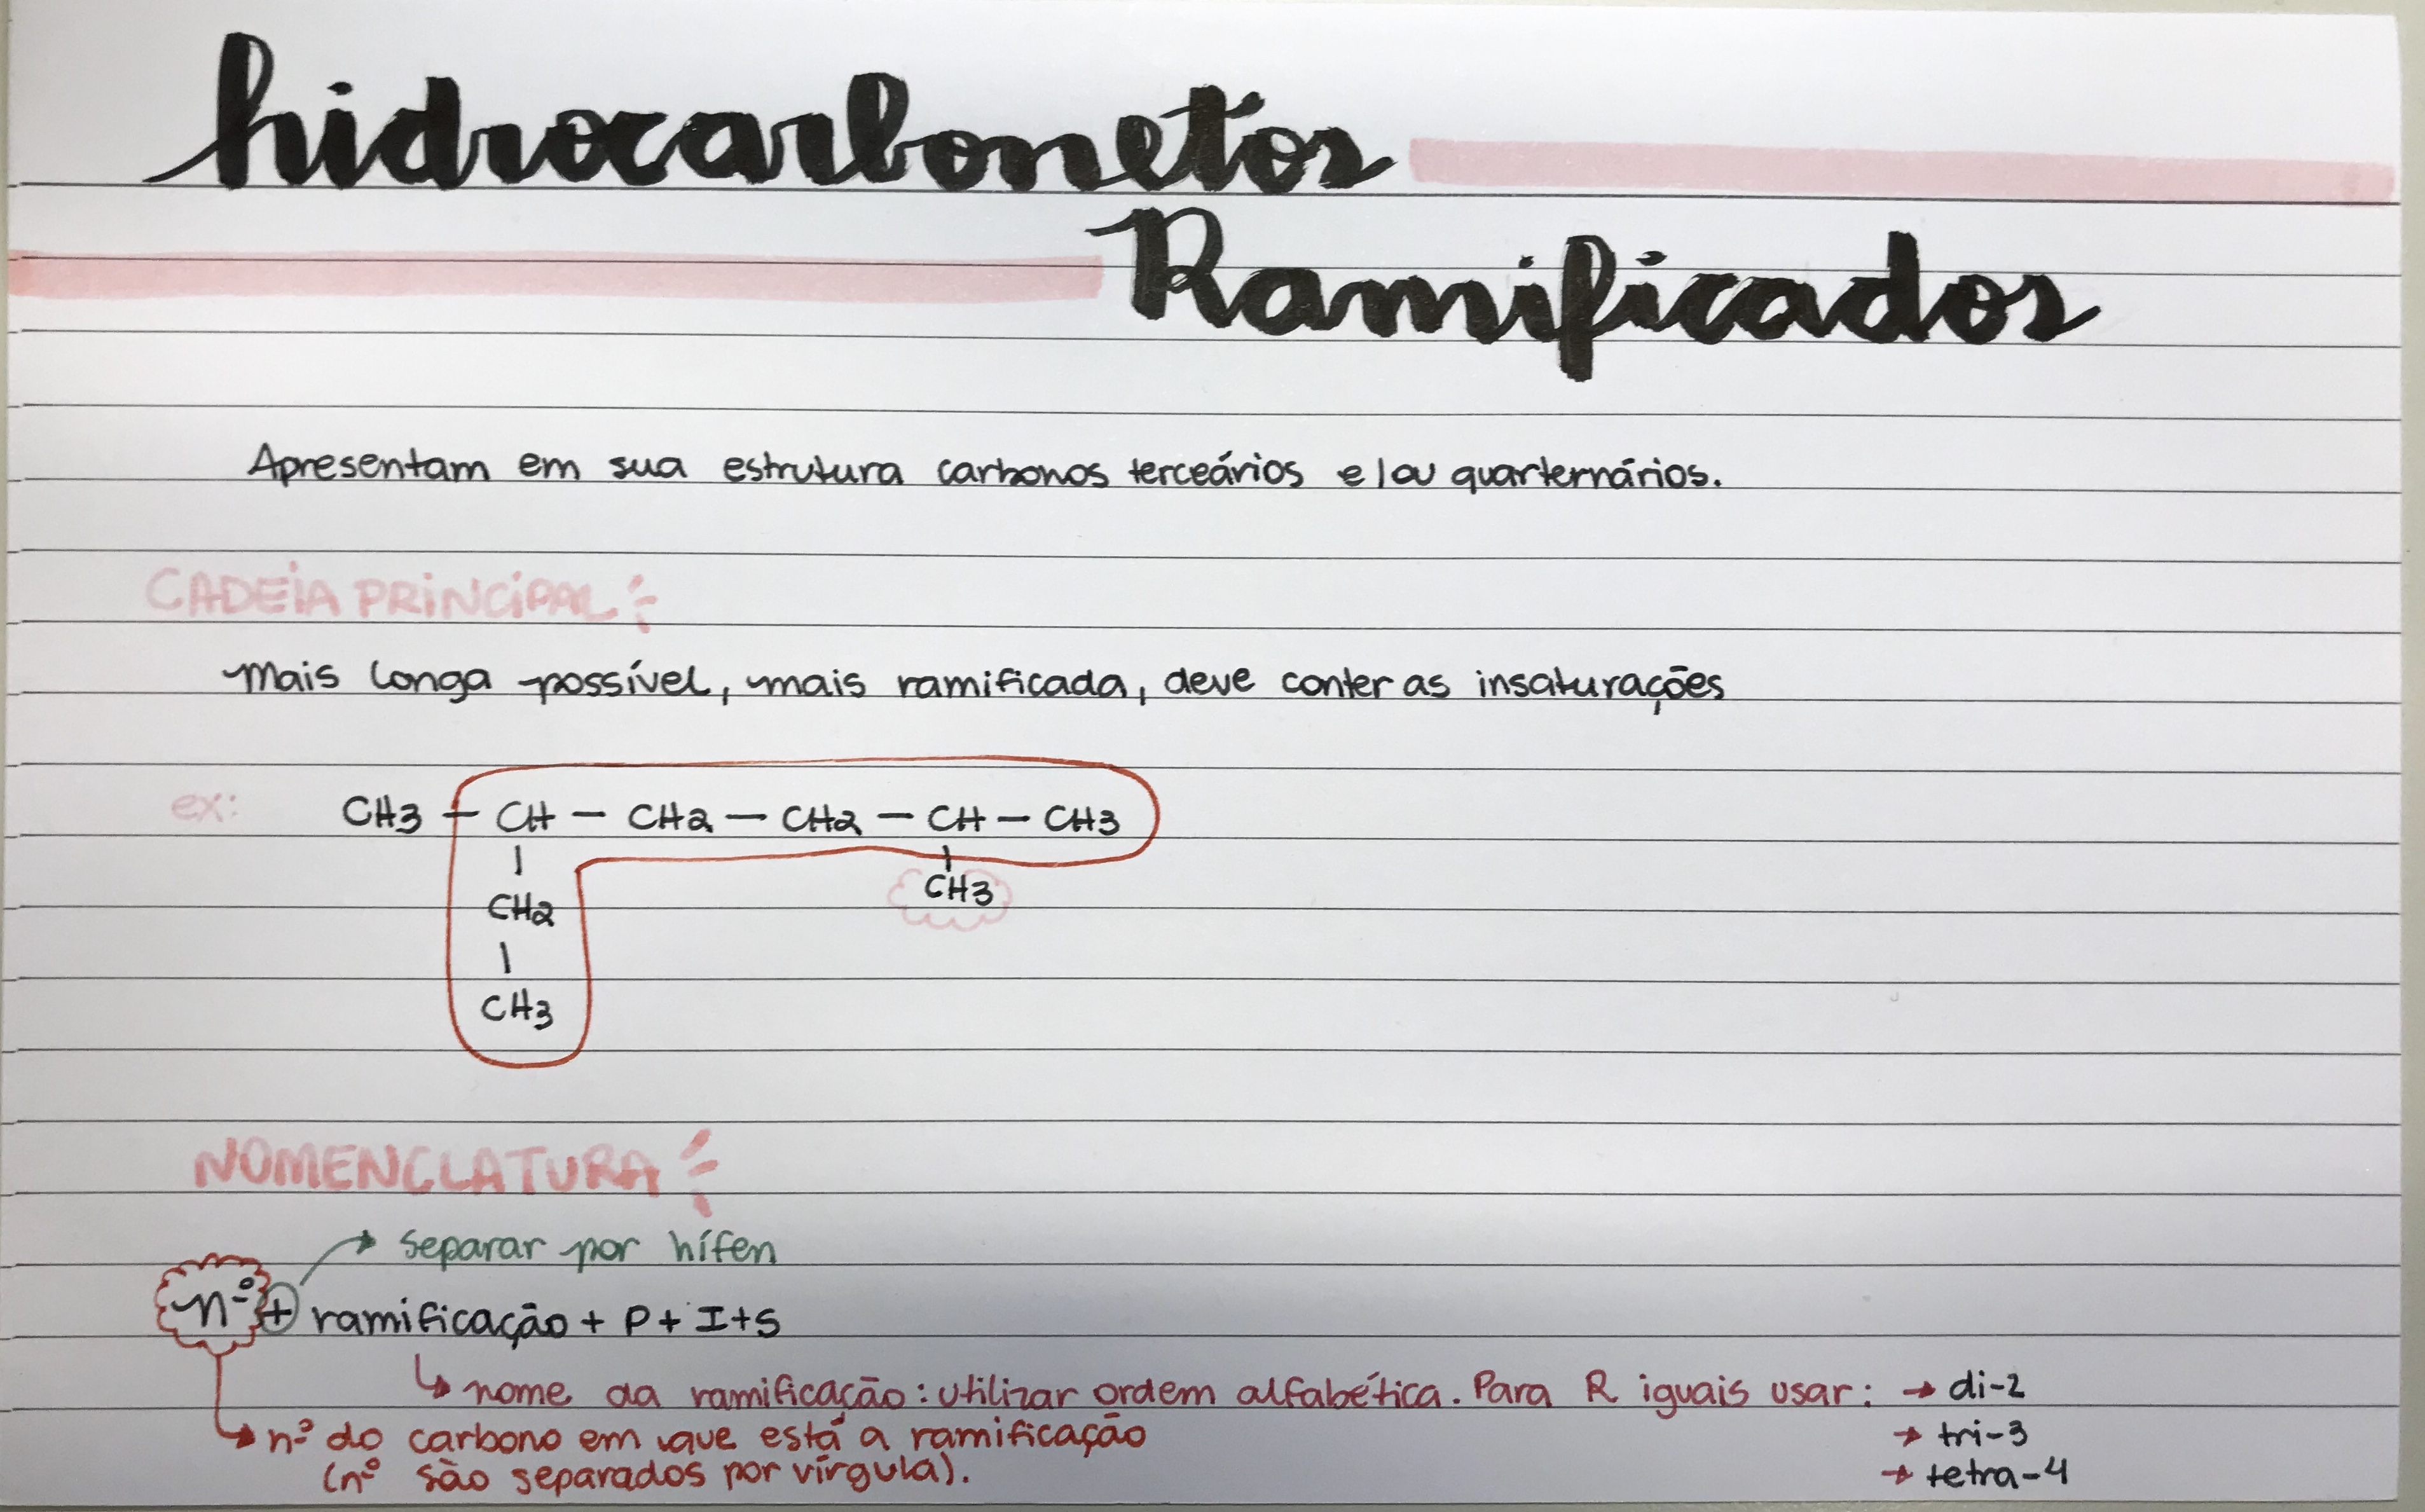 hidrocarbonetos
Ramificados
Apresentam em sua estrutura carbonos terceários e/ou quarternários.
CADEIA PRINCIPAL
Mais longa possível, mais ramificada, deve conter as insaturações
ex: CH3 — CH — CH2 — CH2 — CH — CH3
| |
CH2 CH3
|
CH3
NOMENCLATURA
separar por hífen
nº + ramificação + P + I + S
↳ nome da ramificação: utilizar ordem alfabética. Para R iguais usar: → di-2
↳ nº do carbono em que está a ramificação → tri-3
(nº são separados por vírgula). → tetra-4